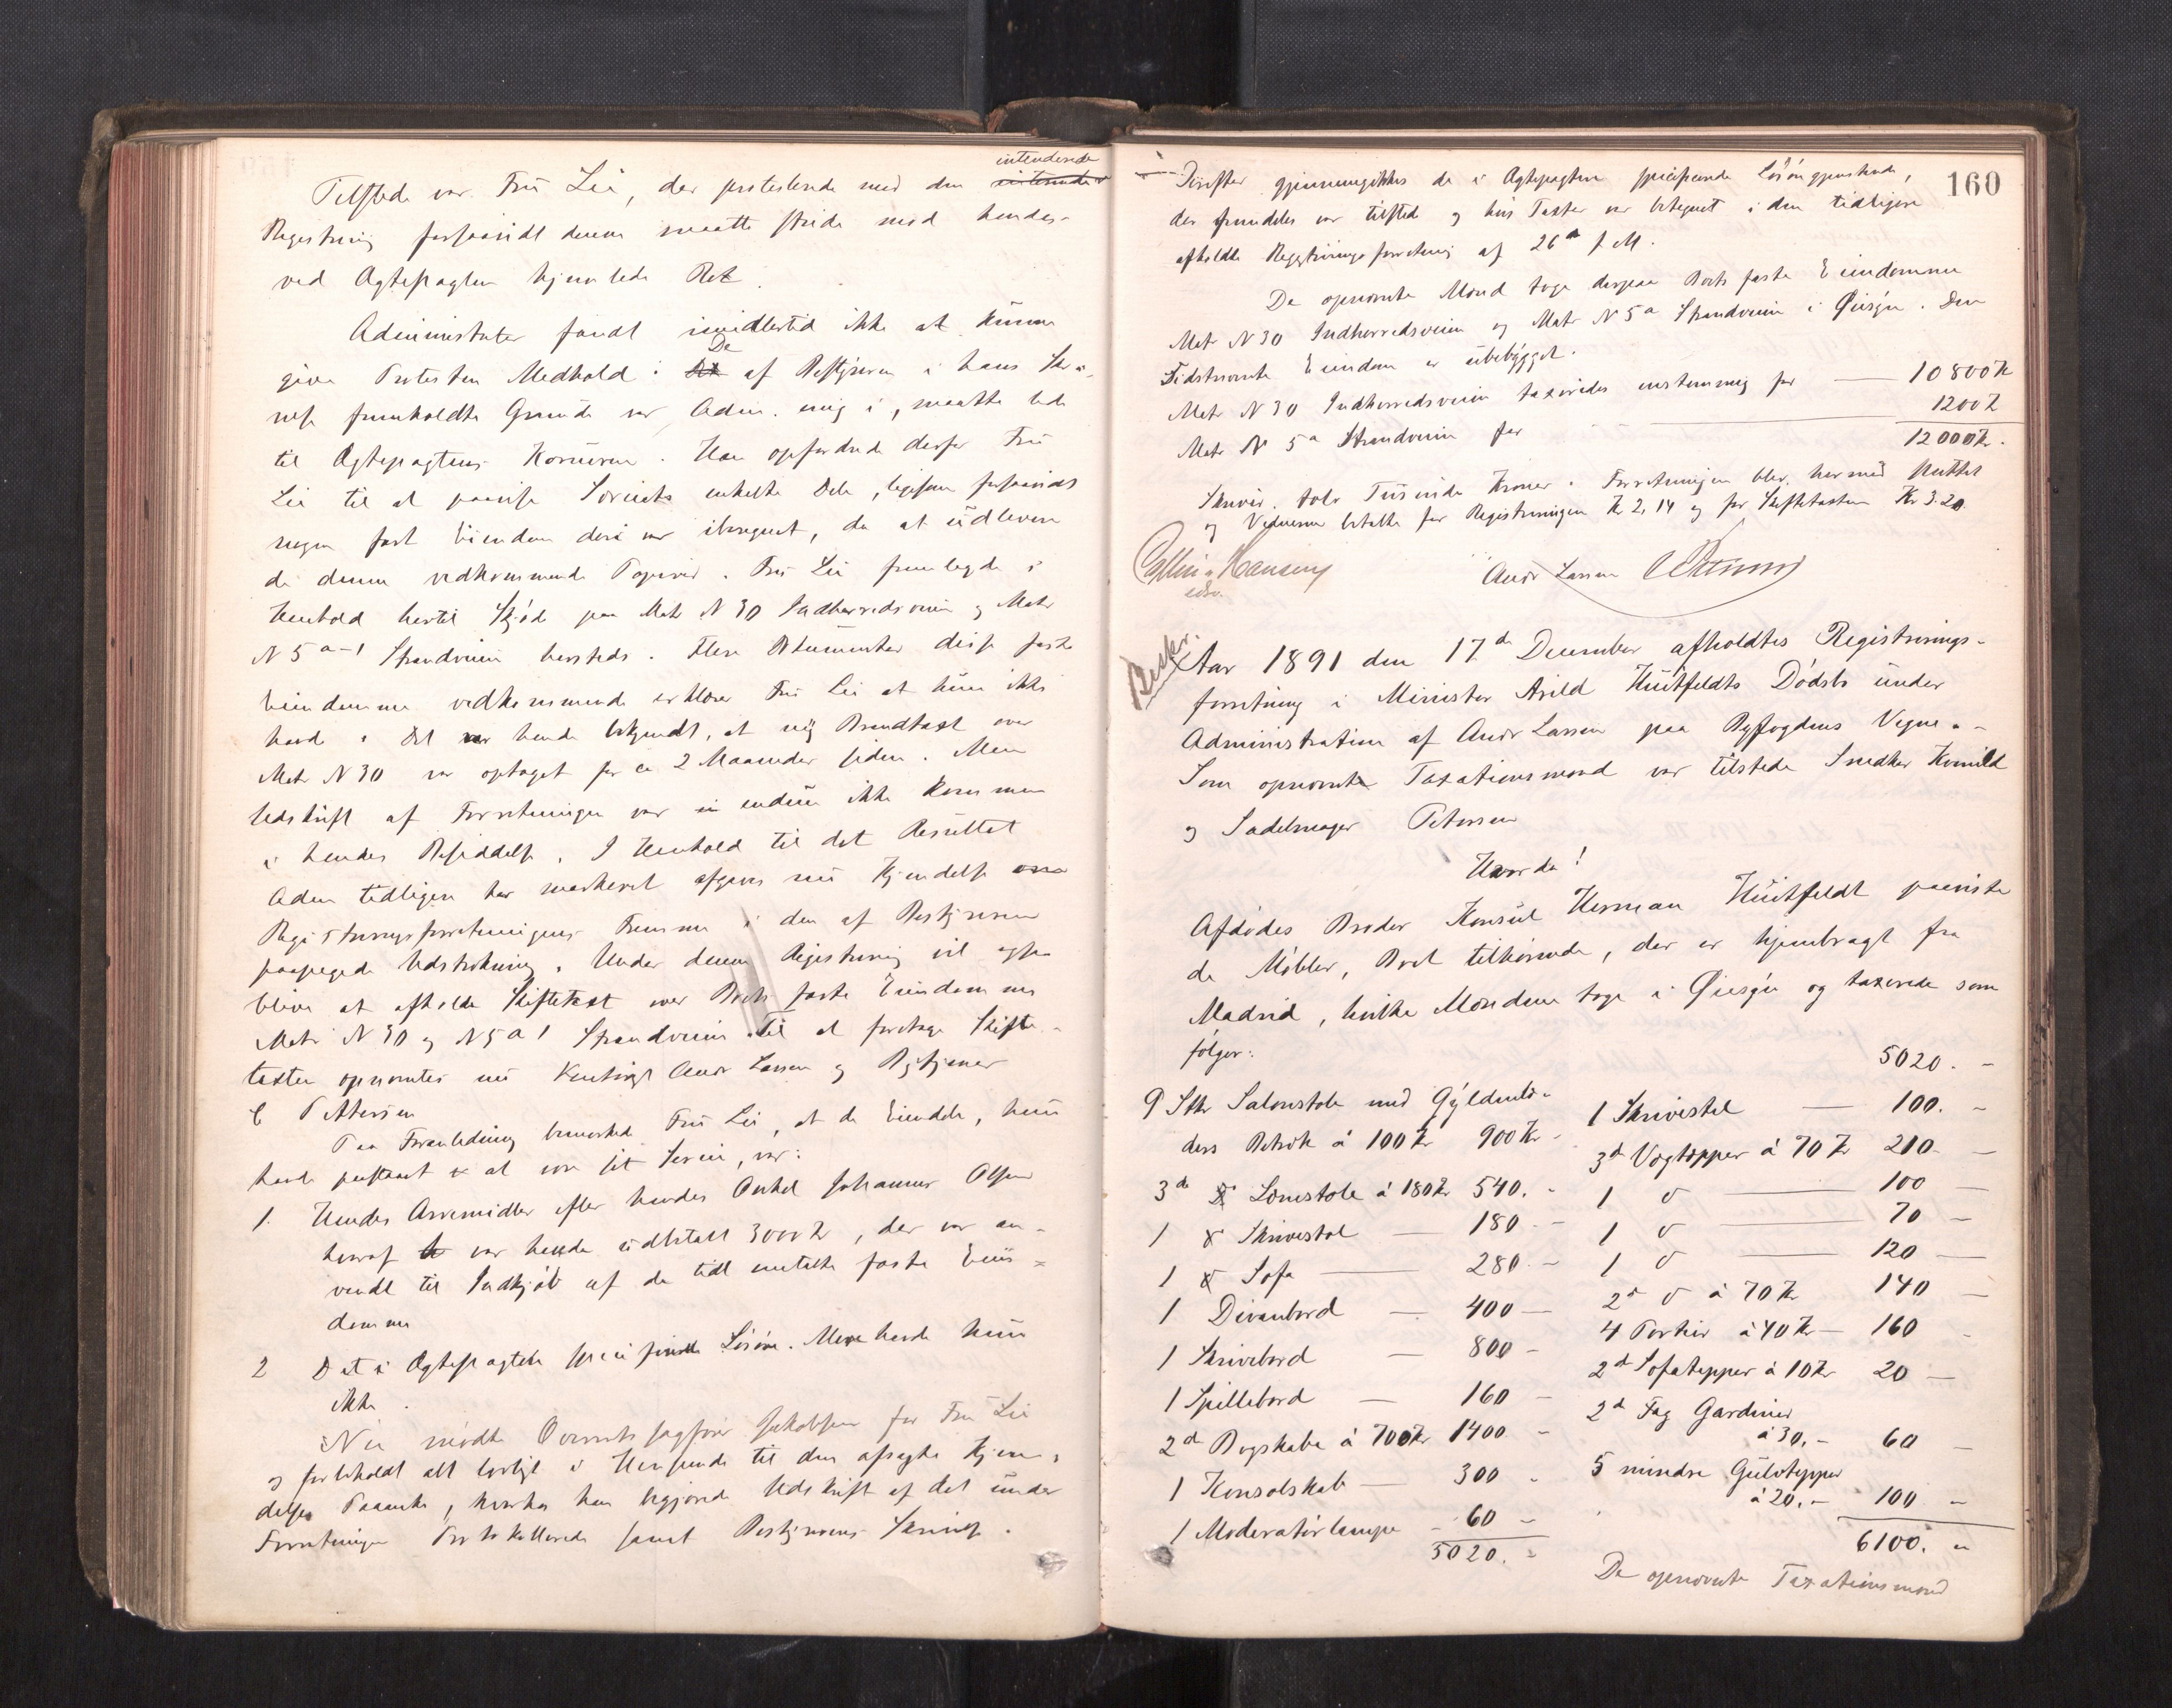 intenderede
Tilstede var Fru Lie, der protesterede mod den
Registrering forsaavidt denne maatte stride mod hendes
ved Ægtepagten hjemlede Ret.
Administrator fandt imidlertid ikke at kunne
De
give Protesten Medhold; af Bestyreren i hans Skri-
velse fremholdte Grunde var Adm. enig i, maatte lede
til Ægtepagtens . Han opfordrede derfor Fru
Lie til at paavise Særeiets enkelte Dele, ligesom forsaavidt
nogen fast Eiendom deri var iberegnet, da at udlevere
de denne vedkommende Papirer. Fru Lie fremlagde i
Henhold hertil Skjøde paa Matr N 30 Indherredsveien og Matr
N 5 a-1 Strandveien hersteds. Flere Dokumenter disse faste
Eiendomme vedkommende erklærer Fru Lie at hun ikke
havde. Det var hende bekjendt, at ny Brandtaxt over
Matr N 30 var optaget for ca 2 Maaneder siden. Men
Udskrift af Forretningen var endnu ikke kommen
i hendes Besiddelse. I Henhold til det Resultat
Adm tidligere har markeret afgaves nu Kjendelse
Registreringsforretningens Fremme i den af Bestyreren
paapegede Udstrækning. Under denne Registrering vil ogsaa
blive at afholde Skiftetaxt over Boets faste Eiendomme
Matr N 30 og N 5 a 1 Strandveien. Til at foretage Skifte-
taxten opnævntes nu Andr Larsen og
E Pettersen
Paa Foranledning bemærkede Fru Lie, at de Eiendele, hun
havde paastaaet at være sit Særeie, var:
1. Hendes Arvemidler efter hendes Onkel Johannes Olsen
hvoraf var hende udbetalt 3000 Kr, der var an-
vendt til Indkjøb af de tidl omtalte faste Eien-
domme
2 Det i Ægtepagten specificerede Løsøre. Mere havde hun
ikke.
Nu mødte Overretssagfører Jakobsen for Fru Lie
og forbeholdt alt lovligt i Henseende til den afsagte Kjen-
delses Paaanke, hvorhos han begjærede Udskrift af det under
Forretningen Protokollerede samt Bestyrerens Skrivelse.
160
Derefter gjennemgikkes de i Ægtepagten specificerede Løsøregjenstande,
der fremdeles var tilsted og hvis Taxter var betegnet i den tidligere
afholdte Registreringsforretning af 26de f. M.
De opnævnte Mænd toge derpaa Boets faste Eiendomme
Matr N 30 Indherredsveien og Matr N 5a Strandveien i Øiesyn. Den
Sidstnævnte Eiendom er ubebygget.
Matr N 30 Indherredsveien taxeredes enstemmig for — 10800 Kr
Matr N 5a Strandveien for — 1200 Kr
12000 Kr.
Skriver tolv Tusinde Kroner. Forretningen blev hermed sluttet
og Vidnerne betalte for Registreringen Kr 2,14 og for Skiftetaxten Kr 3.20
Collin Hansen
edsv.
Andr Larsen
Beskr.
Aar 1891 den 17de December afholdtes Registrerings-
forretning i Minister Arild Huitfeldts Dødsbo under
Administration af Andr Larsen paa Byfogdens Vegne.
Som opnævnte Taxationsmænd var tilstede Snedker Kvinild
og Sadelmager Petersen
Hvorda!
Afdødes Broder Konsul Herman Huitfeldt paaviste
de Møbler, Boet tilhørende, der er hjembragt fra
Madrid, hvilke Mændene toge i Øiesyn og taxerede som
følger:
9 Stkr Salonstole med Gyldenlæ-
ders Betræk á 100 Kr 900 Kr -
3 do Lænestole á 180 Kr 540. -
1 Skrivestol — 180 -
1 Sofa — 280. -
1 Divanbord — 400 —
1 Skrivebord — 800 -
1 Spillebord — 160 -
2 d Bogskabe á 700 Kr 1400 -
1 Konsolskab — 300 -
1 Moderatørlampe - 60 -
5020. -
5020. -
1 Skrivestel — 100. -
3d Vægtepper á 70 Kr 210. —
1 d — 100 —
1 d — 70 —
1 d — 120 —
2d d á 70 Kr 140 —
4 Portier á 40 Kr — 160 -
2d Sofatepper á 10 Kr 20 —
2d Fag Gardiner
á 30. - 60 —
5 mindre Gulvtepper
á 20. - 100 -
6100. -
De opnævnte Taxationsmænd